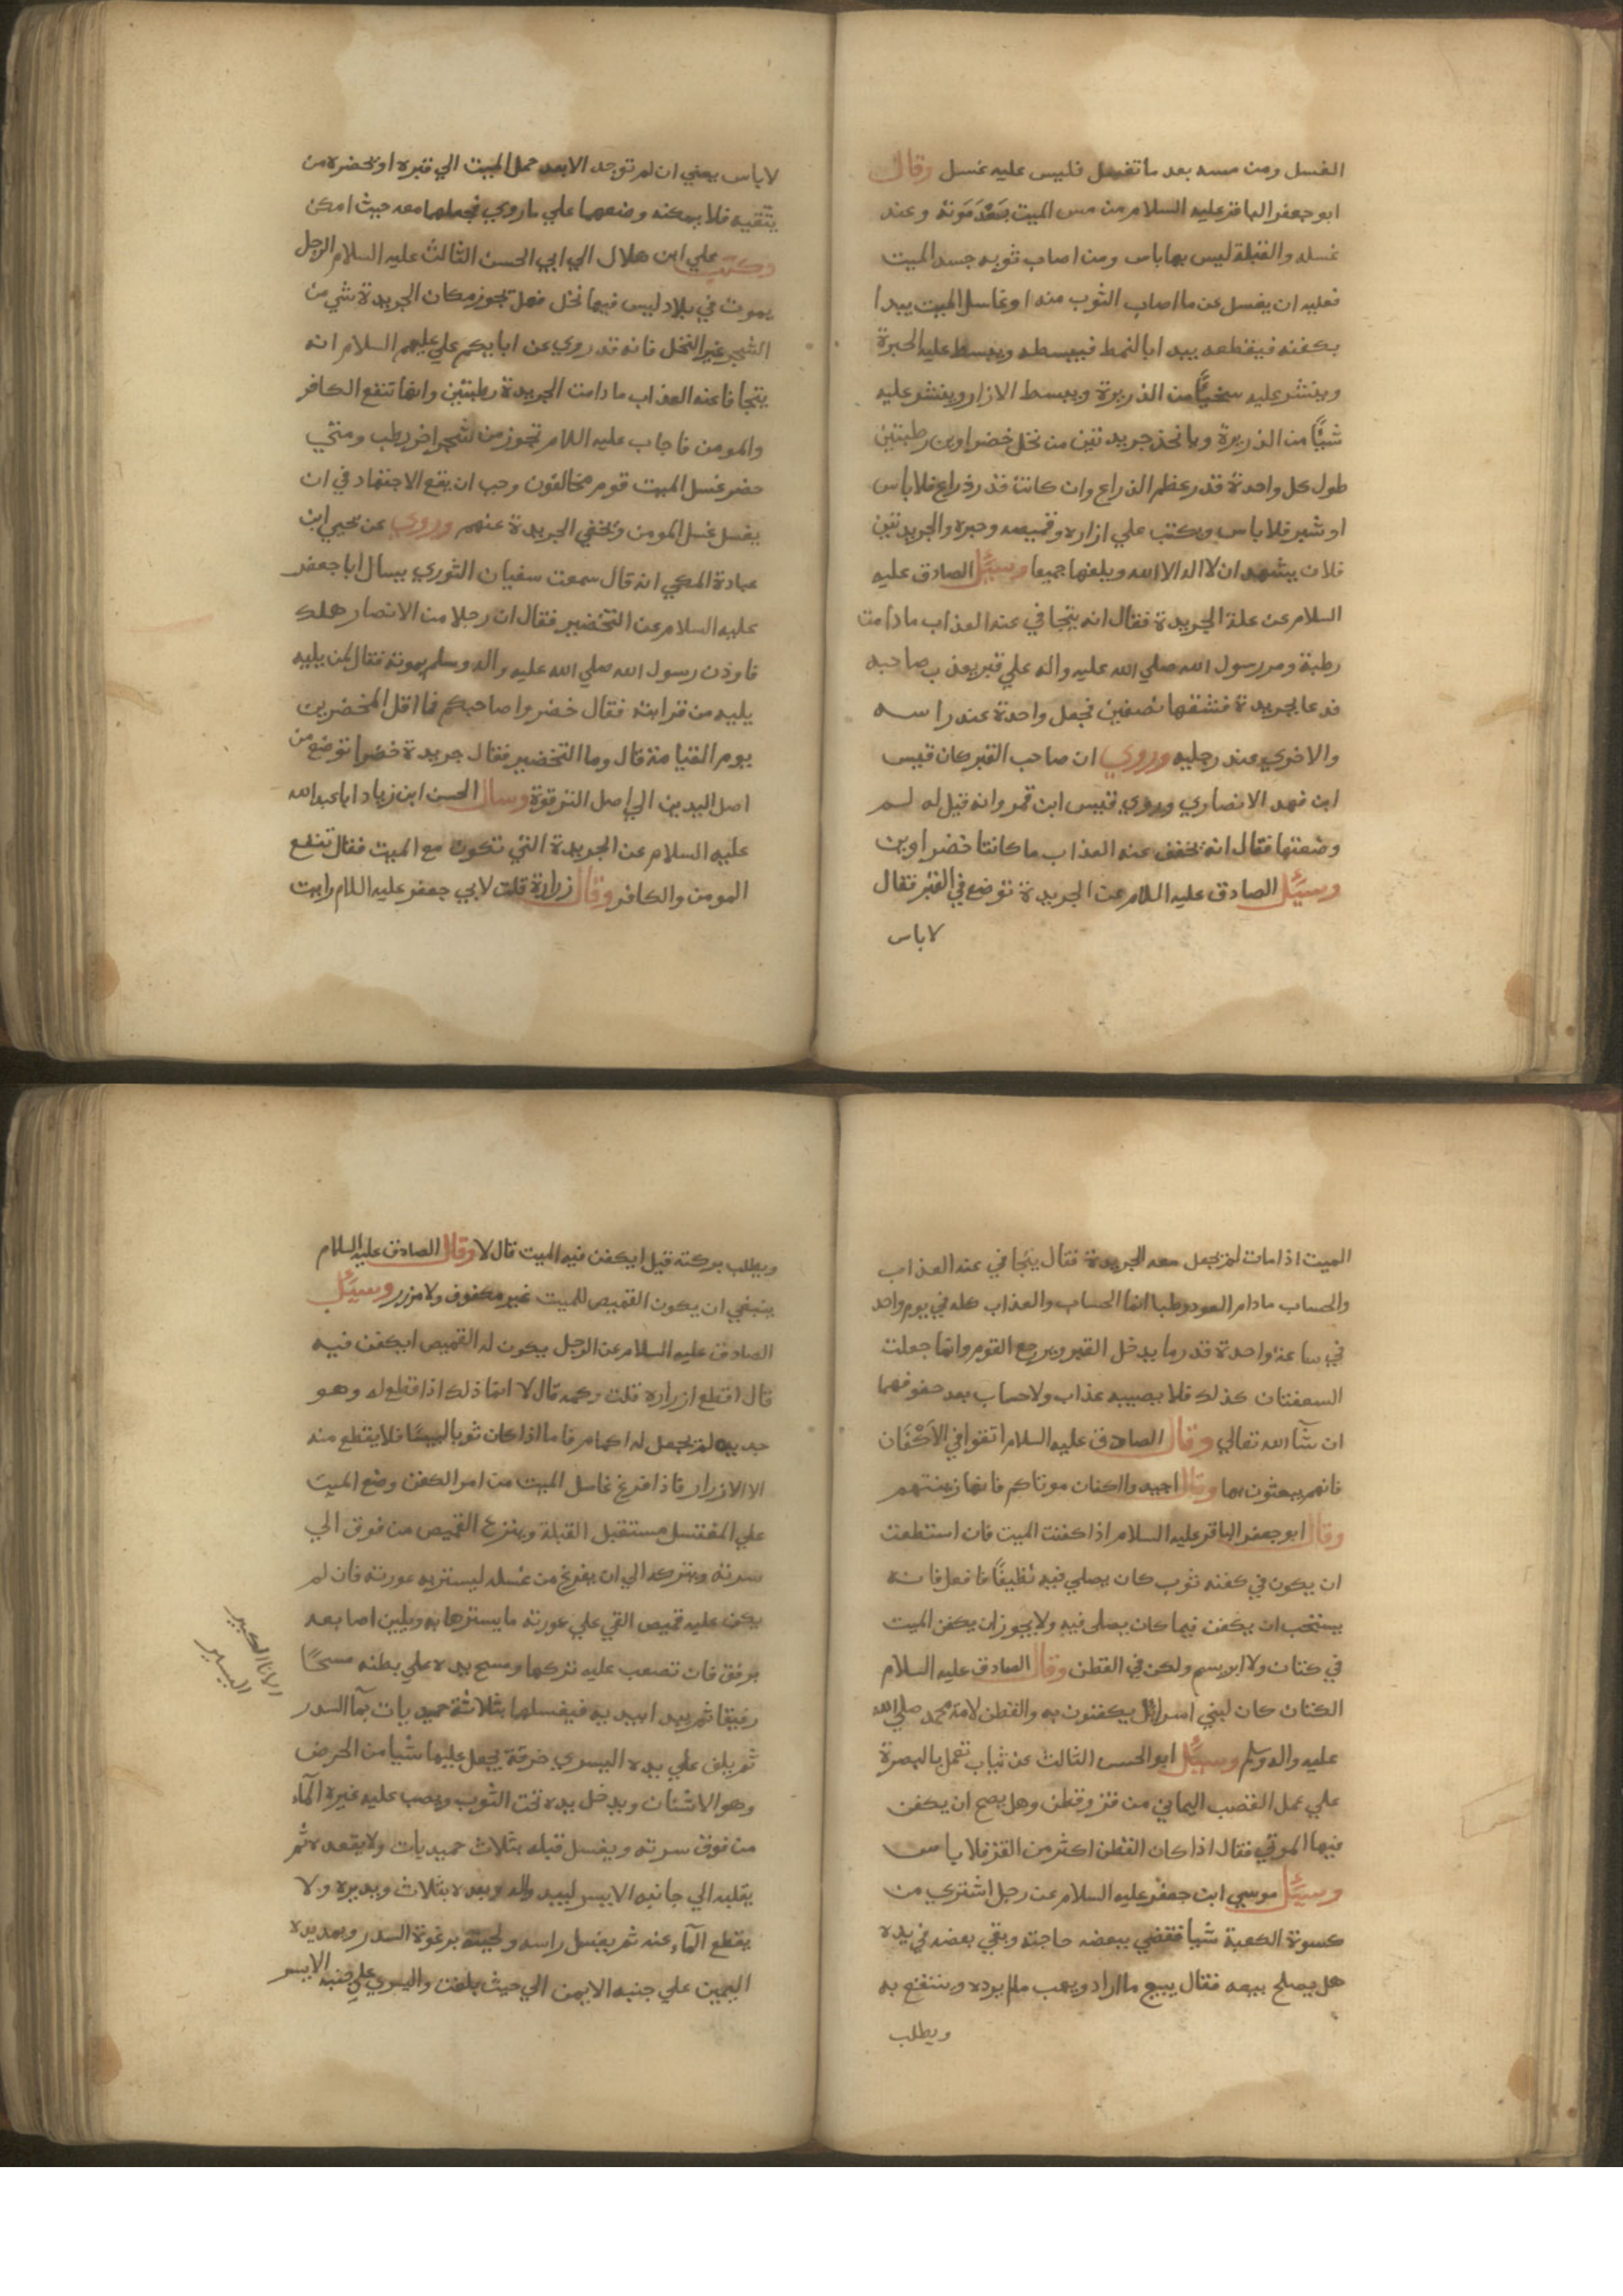 الغسل ومن مسه بعد ما تغسل فليس عليه غسل وقال
ابو جعفر الباقر عليه السلام من مس الميت بَعْدَ مَوتهُ وعند
غسله والقبلة ليس بها باس ومن اصاب ثوبه جسد الميت
فعليه ان يغسل عن ما اصاب الثوب منه او غاسل الميت يبدا
بكفنه فيقطعه يبدا بالنمط فيبسطه ويبسط عليه الحبرة
وينشر عليه من الذريرة ويبسط الازار وينشر عليه
شيًا من الذريرة وياخذ جريدتين من نخل خضراوين رطبتين
طول كل واحدة قدر عظم الذراع وان كانت قدر ذراع فلا باس
او شبر فلا باس ويكتب علي ازاره وقميصه وحبره والجريدتين
فلان يشهد ان لا اله الا الله ويلفها جميعا وسيُل الصادق عليه
السلام عن علة الجريدة فقال انه يتجافي عنه العذاب ما دامت
رطبة ومر رسول الله صلي الله عليه واله علي قبر يعذب صاحبه
فدعا بجريدة فشقها نصفين فجعل واحدة عند راسه
والاخري عند رجليه وروي ان صاحب القبر كان قيس
ابن فهد الانصاري وروي قيس ابن قمر وانه قيل له لم
وضعتها فقال انه يخفف عنه العذاب ما كانتا خضراوين
وسيُل الصادق عليه اللام عن الجريدة توضع في القبر فقال
لا باس
لا باس يعني ان لم توجد الا بعد حمل الميت الي قبره او يحضره من
يتقيه فلا يمكنه وضعهما علي ما روي فجعلهما معه حيث امكن
وكتب علي ابن هلال الي ابي الحسن الثالث عليه السلام الرجل
يموت في بلاد ليس فيها نخل فهل تجوز مكان الجريدة شي من
الشجر غير النخل فانه قد روي عن ابايكم علي عليهم السلام انه
يتجافا عنه العذاب ما دامت الجريدة رطبتين وانها تنفع الكافر
والمومن فاجاب عليه اللام تجوز من شجر اخر رطب ومتي
حضر غسل الميت قوم مخالفون وجب ان يقع الاجتهاد في ان
يغسل غسل المومن وتخفي الجريدة عنهم وروي عن يحيي ابن
عبادة المكي انه قال سمعت سفيان الثوري يسال ابا جعفر
عليه السلام عن التخضير فقال ان رجلا من الانصار هلك
فاوذن رسول الله صلي الله عليه واله وسلم بموته فقال لمن يليه
يليه من قرابته فقال خضروا صاحبكم فما اقل المخضرين
يوم القيامة قال وما التخضير فقال جريدة خضرا توضع من
اصل اليدين الي اصل الترقوة وسال الحسن ابن زياد ابا عبد الله
عليه السلام عن الجريدة التي تكون مع الميت فقال تنفع
المومن والكافر وقال زرارة قلت لابي جعفر عليه اللام رايت
الميت اذا مات لم تجعل معه الجريدة فقال يتجافي عنه العذاب
والحساب ما دام العود رطبا انما الحساب والعذاب كله في يوم واحد
في ساعة واحدة قدر ما يدخل القبر ويرجع القوم وانما جعلت
السعفتان كذلك فلا يصيبه عذاب ولا حساب بعد جفوفهما
ان شآ الله تعالي وقال الصادق عليه السلام اتقوا في الاَكْفَان
فانهم يبعثون بها وقال اجيدوا اكفان موتاكم فانها زينتهم
وقال ابو جعفر الباقر عليه السلام اذا كفنت الميت فان استطعت
ان يكون في كفنه ثوب كان يصلي فيه نظيفًا فافعل فانه
يستحب ان يكفن فيما كان يصلي فيه ولا يجوز ان يكفن الميت
في كتان ولا ابريسم ولكن في القطن وقال الصادق عليه السلام
الكتان كان لبني اسرائل يكفنون به والقطن لامة محمد صلي الله
عليه واله وسلم وسيُل ابو الحسن الثالث عن ثياب تعمل بالبصرة
علي عمل القصب اليماني من قز وقطن وهل يصح ان يكفن
فيها الموتي فقال اذا كان القطن اكثر من القز فلا باس
وسيُل موسي ابن جعفر عليه السلام عن رجل اشتري من
كسوة الكعبة شيا فقضي ببعضه حاجته وبقي بعضه في يده
هل يصلح بيعه فقال يبيع ما اراد ويهب ما لم يرده وينتفع به
ويطلب
ويطلب بركته قيل ايكفن فيه الميت قال لا وقال الصادق عليه السلام
ينبغي ان يكون القميص للميت غير مكفوف ولا مزرر وسيُل
الصادق عليه السلام عن الرجل يكون له القميص ايكفن فيه
قال اقطع ازراره قلت وكمه قال لا انما ذلك اذا قطع له وهو
جديد لم يجعل له اكمام فاما اذا كان ثوبا لبيسًا فلا يقطع منه
الا الازرار فاذا فرغ غاسل الميت من امر الكفن وضع الميت
علي المغتسل مستقبل القبلة وينزع القميص من فوق الي
سرته ويتركه الي ان يفرغ من غسله ليستر به عورته فان لم
يكن عليه قميص القي علي عورته ما يسترها به ويلين اصابعه
برفق فان تصعب عليه تركها ومسح يده علي بطنه مسحًا
رفيقا ثم يبدا بيديه فيغسلها بثلاثة حميديات بمآ السدر
ثم يلف علي يده اليسري خرقة يجعل عليها شيا من الحرض
وهو الاشنان ويدخل يده تحت الثوب ويصب عليه غيره المآء
من فوق سرته ويغسل قبله بثلاث حميديات ولا يقعده ثم
يقلبه الي جانبه الايسر ليبدو له وبعده بثلاث وبدبره ولا
يقطع المآء عنه ثم يغسل راسه ولحيته برغوة السدر وبعد يده
اليمين علي جنبه الايمن الي حيث بلغت واليسري علي جنبه الايسر
الانا الكبير